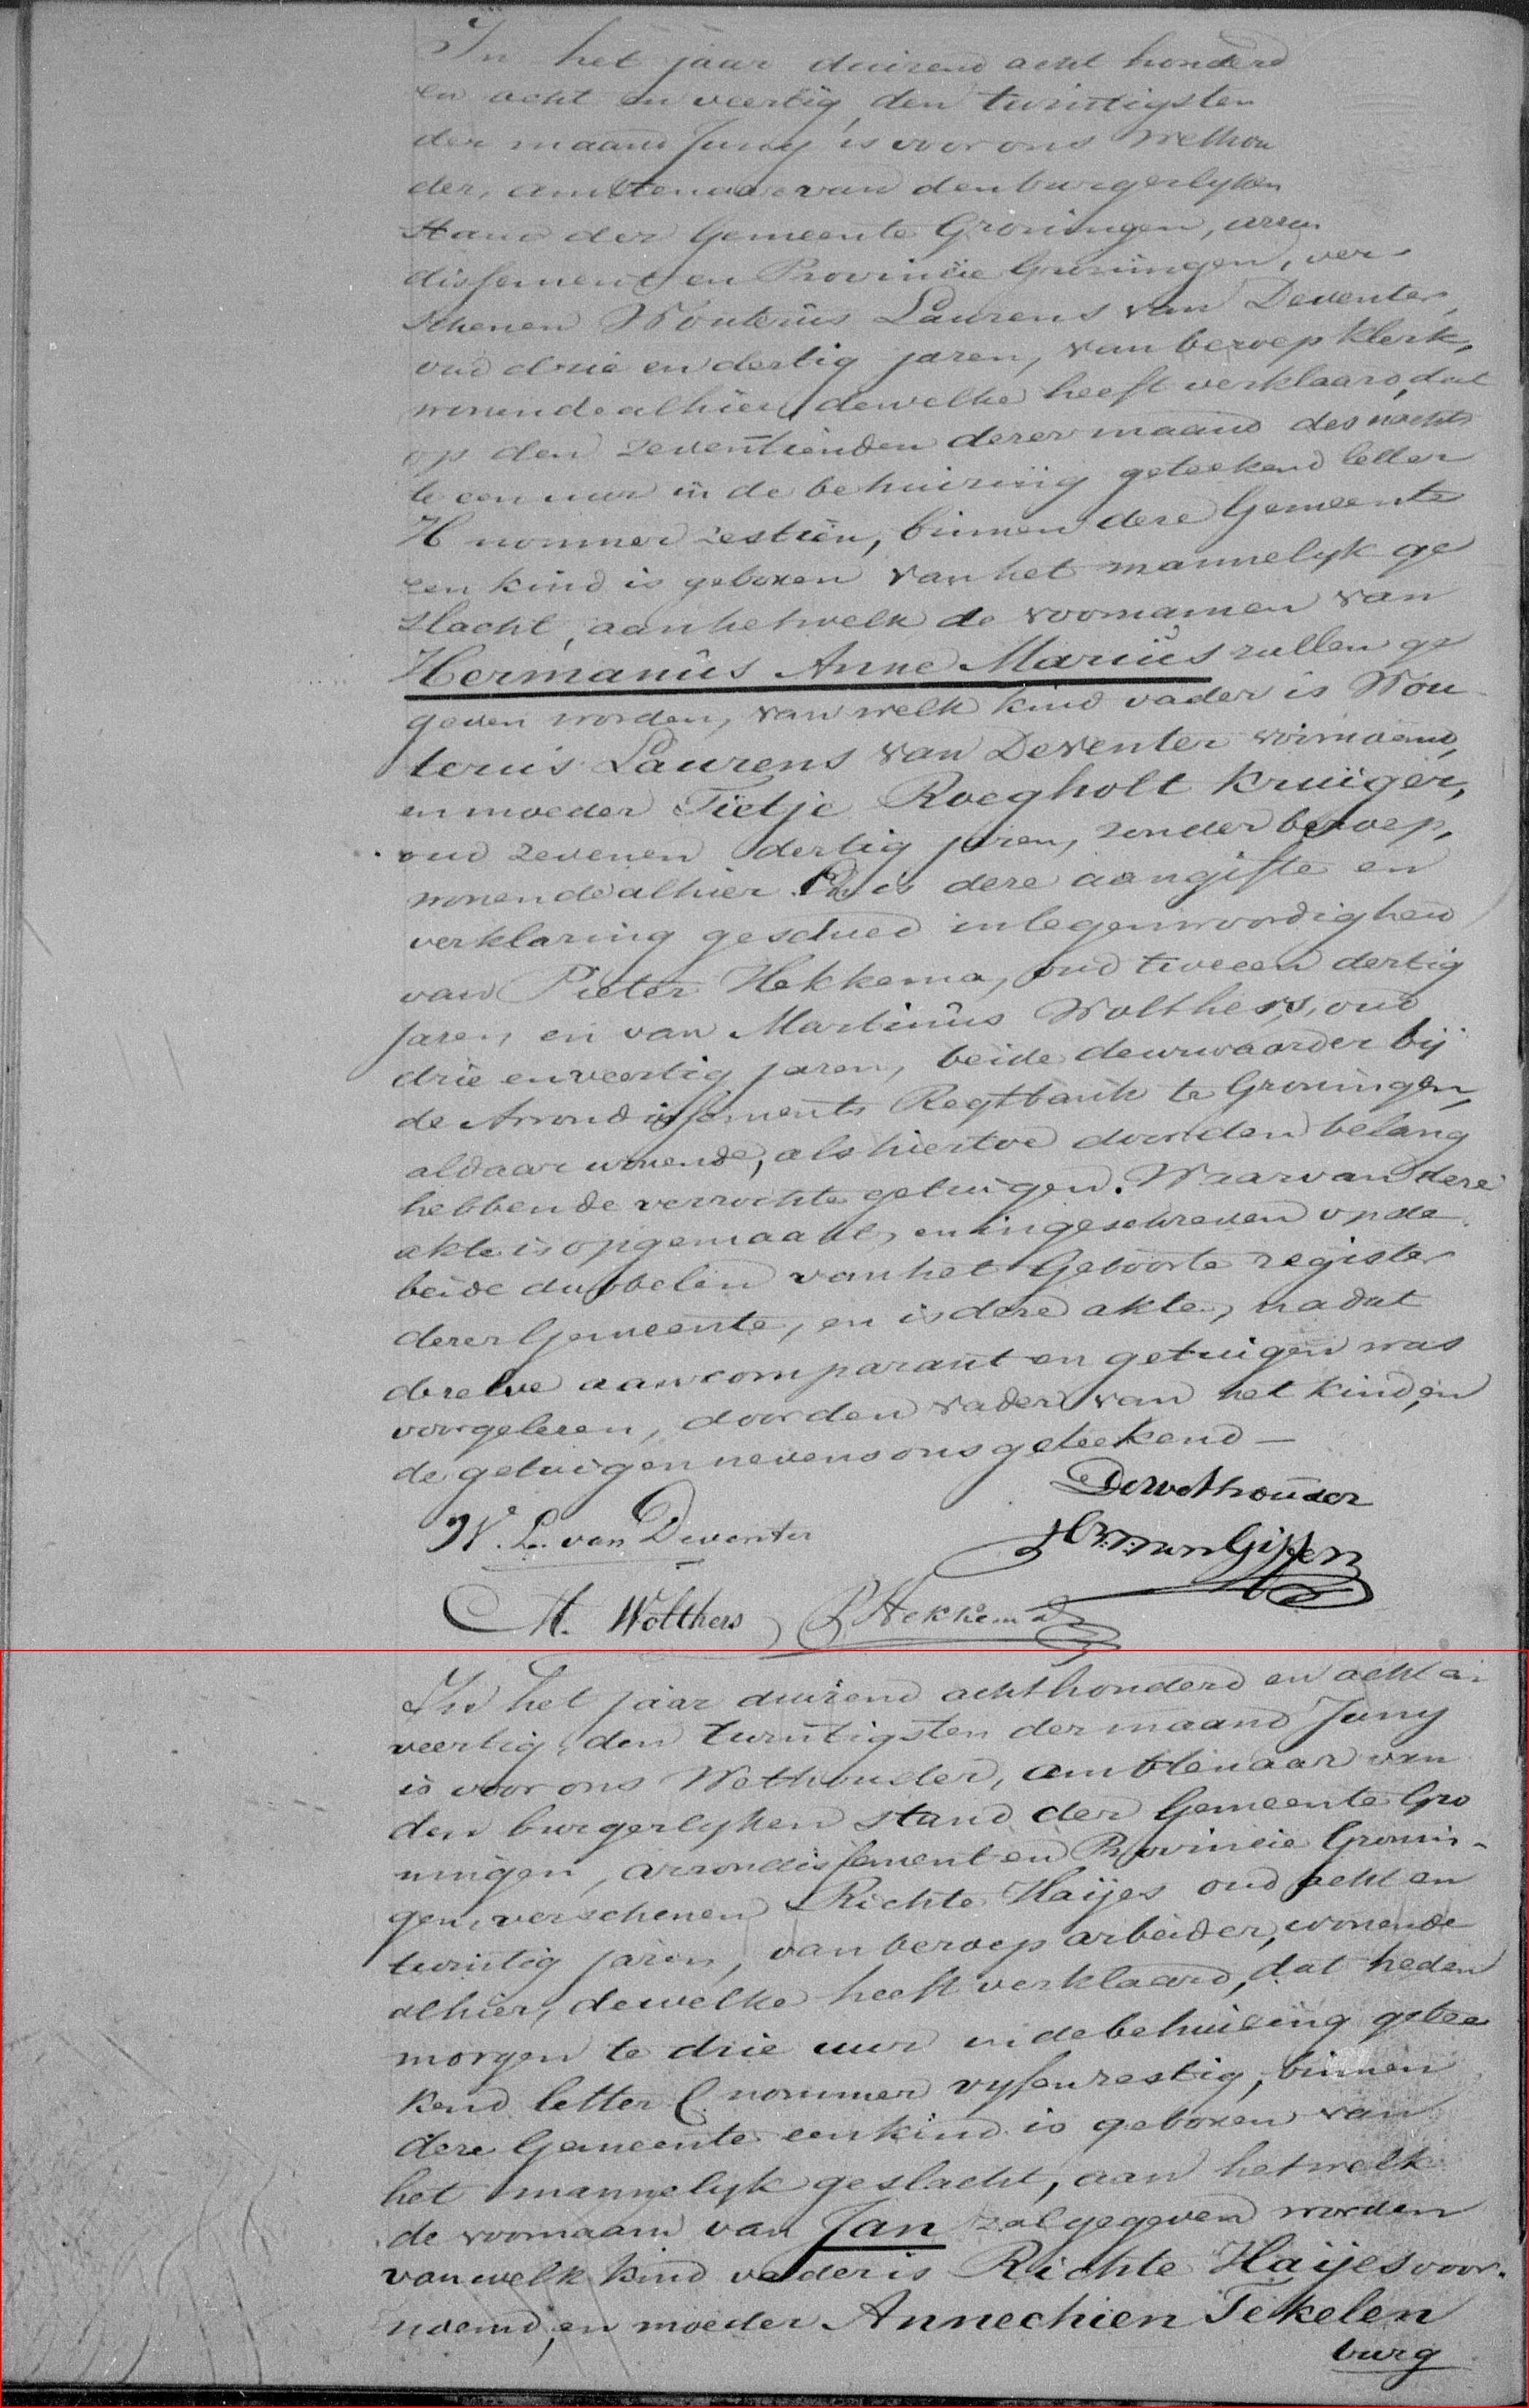 In het jaar duizend acht honderd
en acht en veertig, den twintigsten
der maand Juny is voor ons Wethou
der, ambtenaar van den burgerlyken
stand der Gemeente Groningen, arron
dissement en Provincie Groningen, ver
schenen Wouterus Laurens van Deventer,
oud drie en dertig jaren, van beroep klerk,
wonende alhier, dewelke heeft verklaard, dat
op den zeventienden dezer maand des nachts
te een uur in de behuizing geteekend letter
H nommer zestien, binnen deze Gemeente
een kind is geboren van het mannelyk ge
slacht, aan hetwelk de voornamen van
Hermanus Anne Marius zullen ge
geven worden, van welk kind vader is Wou
terus Laurens van Deventer voornoemd,
en moeder Tietje Roegholt Kruiger,
oud zeven en dertig jaren, zonder beroep,
wonende alhier. En is deze aangifte en
verklaring geschied in tegenwoordigheid
van Pieter Hekkema, oud twee en dertig
jaren, en van Martinus Wolthers, oud
drie en veertig jaren, beide deurwaarder bij
de Arrondissements Regtbank te Groningen,
aldaar wonende, als hiertoe door den belang
hebbende verzochte getuigen. Waarvan deze
akte is opgemaakt, en ingeschreven op de
beide dubbelen van het Geboorte register
dezer Gemeente, en is deze akte, nadat
dezelve aan comparant en getuigen was
voorgelezen, door den vader van het kind, en
de getuigen nevens ons geteekend —
De wethouder
W. L. van Deventer
M. Wolthers P Hekkema
In het jaar duizend achthonderd en acht en
veertig, den twintigsten der maand Juny
is voor ons Wethouder, ambtenaar van
den burgerlyken stand der Gemeente Gro
ningen, arrondissement en Provincie Gronin-
gen, verschenen Richte Haijes oud acht en
twintig jaren, van beroep arbeider, wonende
alhier, dewelke heeft verklaard, dat heden
morgen te drie uur in de behuizing getee
kend letter C. nommer vyfenzestig, binnen
deze Gemeente een kind is geboren van
het mannelyk geslacht, aan hetwelk
de voornaam van Jan zal gegeven worden
van welk kind vader is Richte Haijes voor-
noemd, en moeder Annechien Tekelen
burg